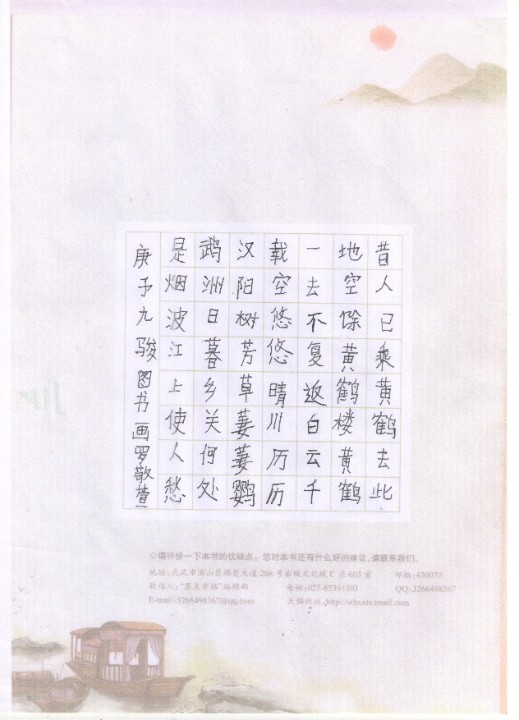 昔人已乘黄鹤去此
地空馀黄鹤楼黄鹤
一去不复返白云千
载空悠悠晴川历历
汉阳树芳草萋萋鹦
鹉洲日暮乡关何处
是烟波江上使人愁
庚子九骏图书画罗敬
◇请评价一下本书的优缺点。您对本书还有什么好的建议，请联系我们。
地址：武汉市洪山区雄楚大道268号出版文化城C座603室 邮编：430070
收信人："墨点字帖"编辑部 电话：027-87391503 QQ：3266498367
E-mail：3266498367@qq.com 天猫网址：http://whxxts.tmall.com